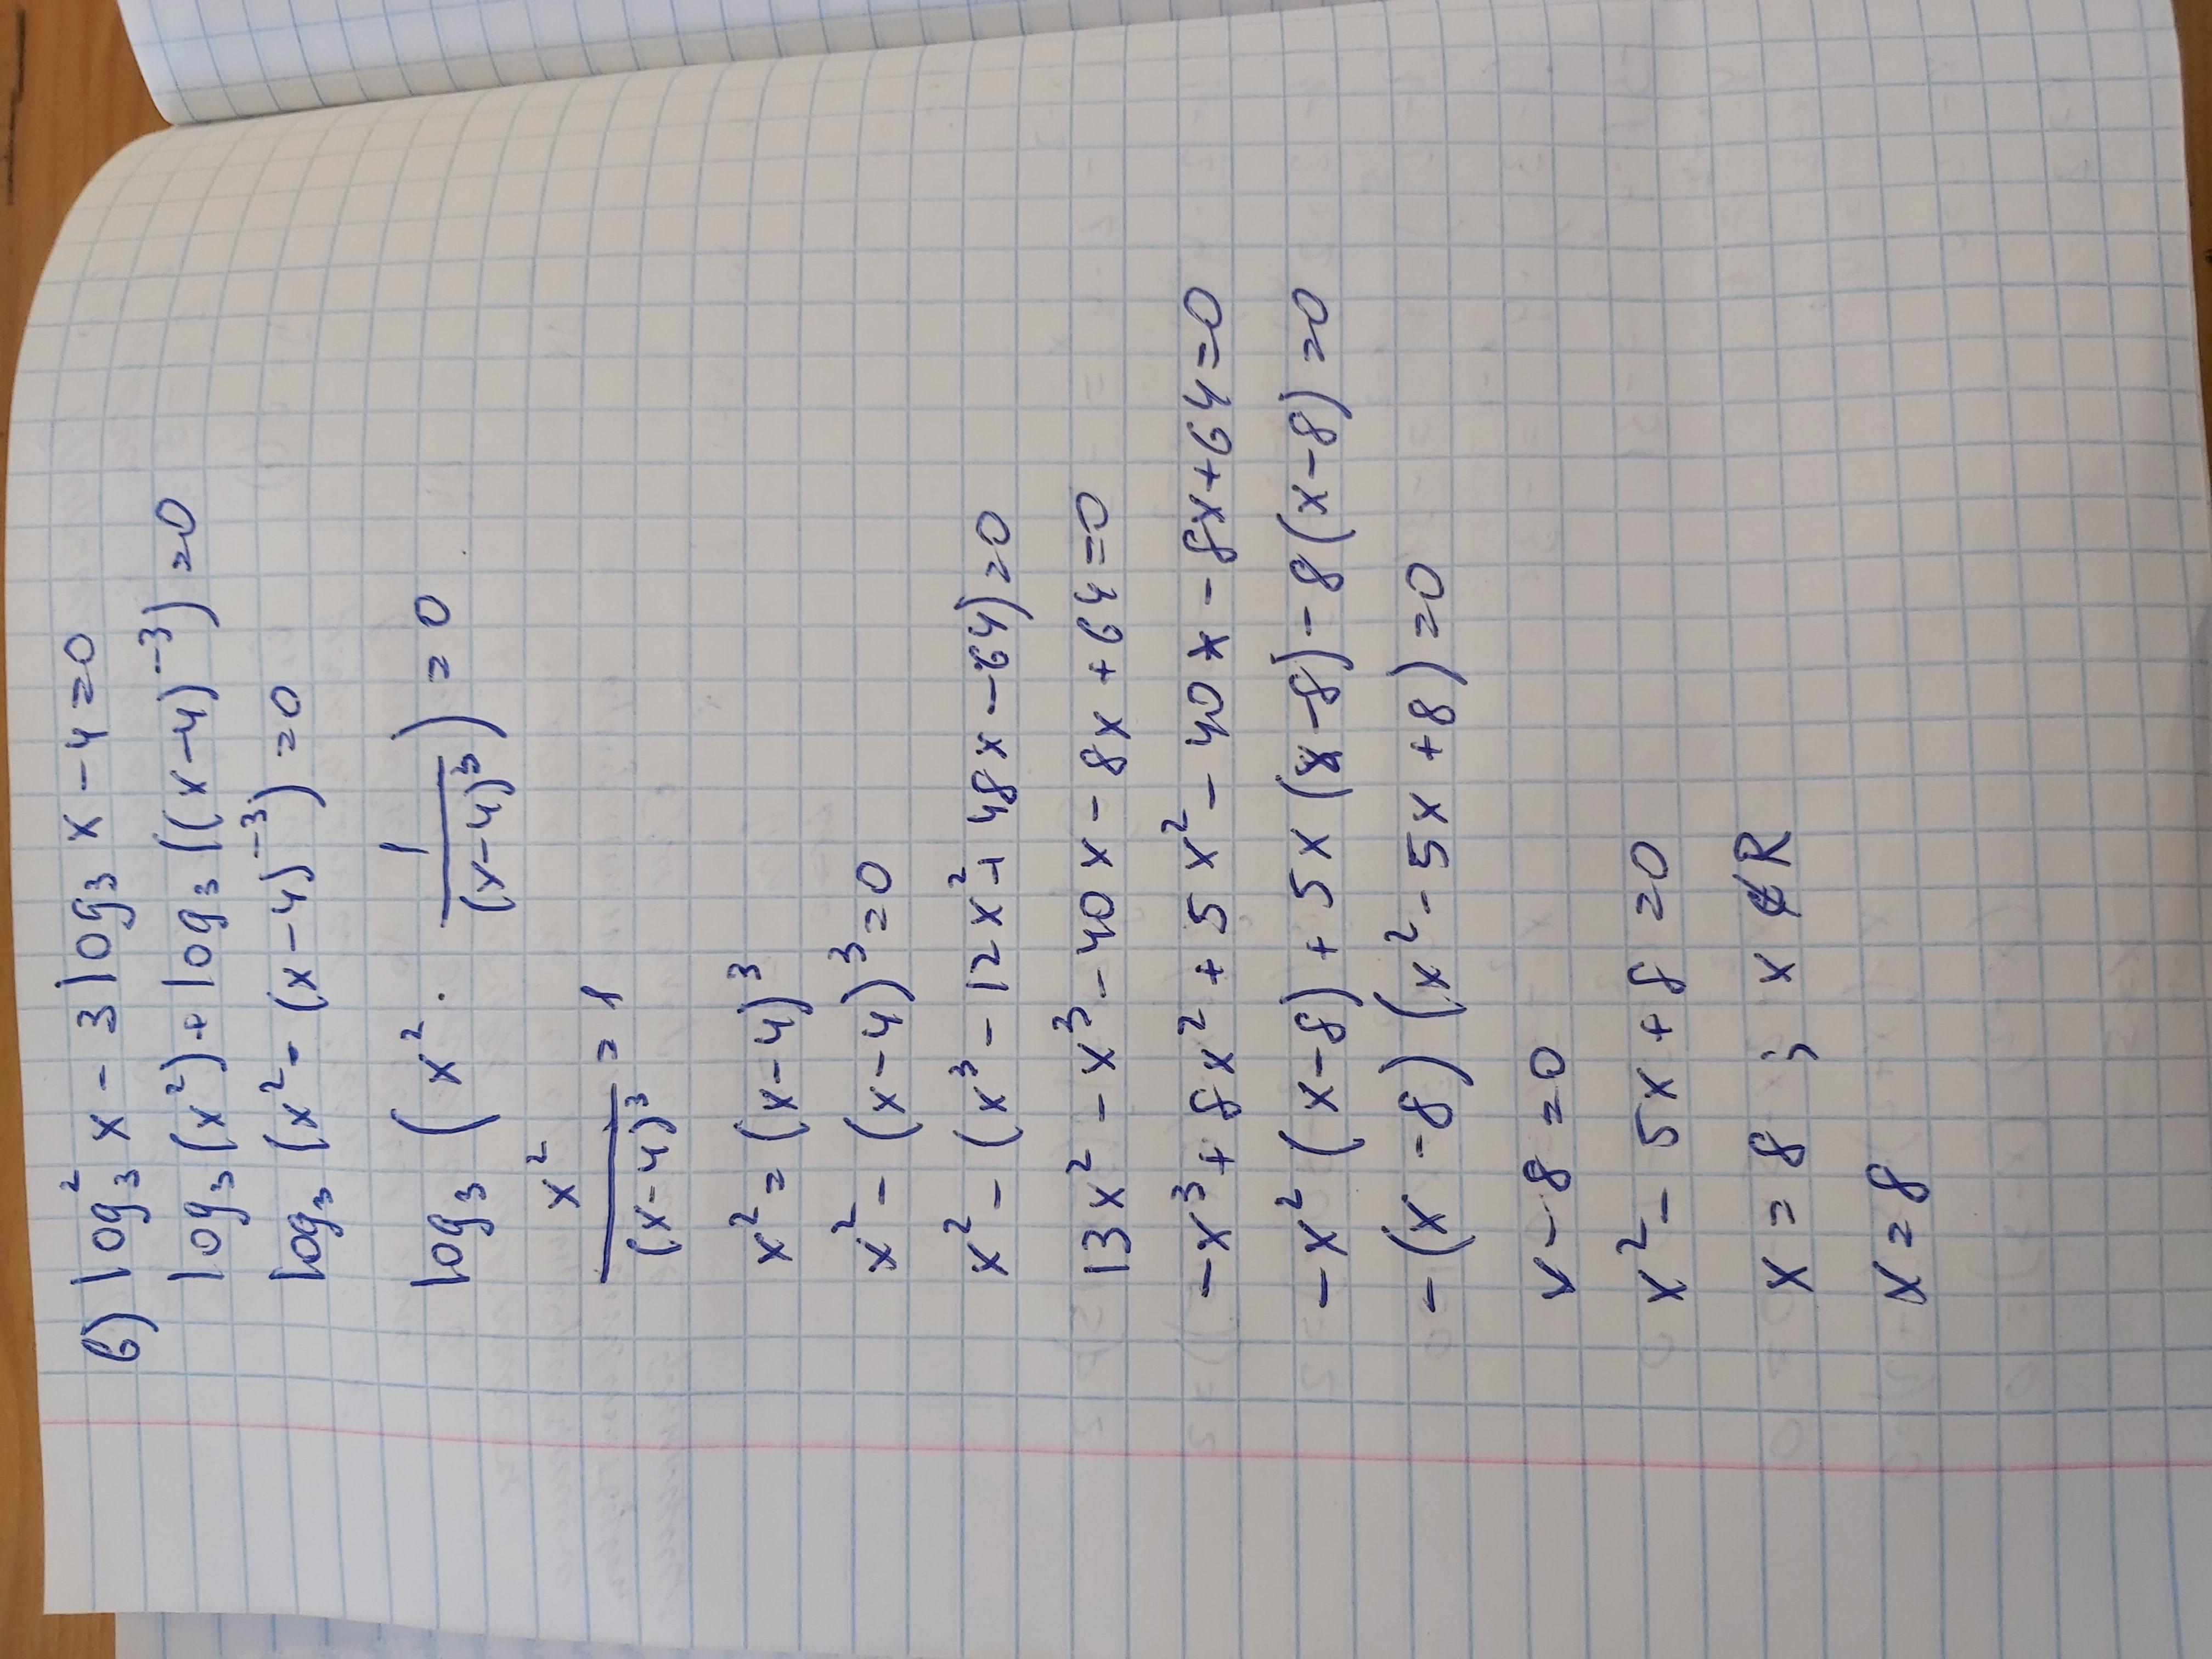 в) log₃² x - 3 log₃ x - 4 = 0
log₃(x²) + log₃((x-4)⁻³) = 0
log₃(x² · (x-4)⁻³) = 0
log₃(x² · 1/(x-4)³) = 0
x²/(x-4)³ = 1
x² = (x-4)³
x² - (x-4)³ = 0
x² - (x³ - 12x² + 48x - 64) = 0
13x² - x³ - 40x - 8x + 64 = 0
-x³ + 8x² + 5x² - 40x - 8x + 64 = 0
-x²(x-8) + 5x(x-8) - 8(x-8) = 0
-(x-8)(x² - 5x + 8) = 0
x - 8 = 0
x² - 5x + 8 = 0
x = 8 ; x ∉ R
x = 8